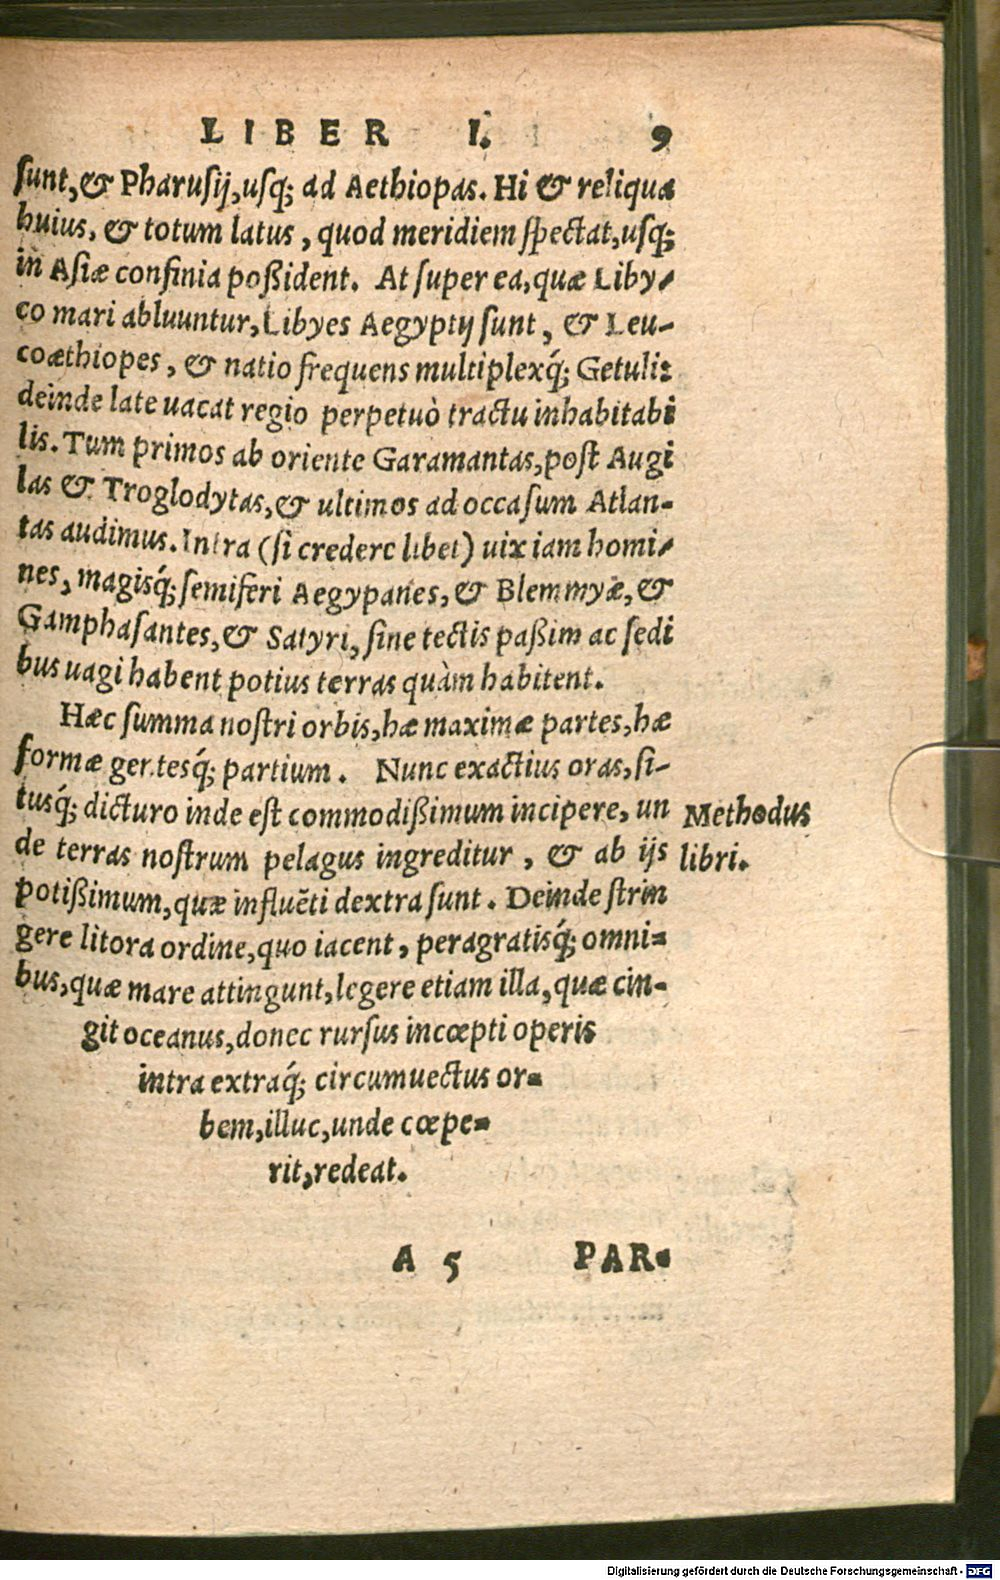 LIBER I. 9
sunt, & Pharusij, usq; ad Aethiopas. Hi & reliqua
huius, & totum latus, quod meridiem spectat, usq;
in Asiæ confinia poßident. At super ea, quæ Liby-
co mari abluuntur, Libyes Aegyptij sunt, & Leu-
coæthiopes, & natio frequens multiplexq́; Getuli:
deinde late uacat regio perpetuò tractu inhabitabi
lis. Tum primos ab oriente Garamantas, post Augi
las & Troglodytas, & ultimos ad occasum Atlan-
tas audimus. Intra (si credere libet) uix iam homi-
nes, magisq́; semiferi Aegypanes, & Blemmyæ, &
Gamphasantes, & Satyri, sine tectis paßim ac sedi
bus uagi habent potius terras quàm habitent.
Hæc summa nostri orbis, hæ maximæ partes, hæ
formæ gentesq́; partium. Nunc exactius oras, si-
tusq́; dicturo inde est commodißimum incipere, un
de terras nostrum pelagus ingreditur, & ab ijs
potißimum, quæ influẽti dextra sunt. Deinde strin
gere litora ordine, quo iacent, peragratisq́; omni-
bus, quæ mare attingunt, legere etiam illa, quæ cin-
git oceanus, donec rursus incœpti operis
intra extraq́; circumuectus or-
bem, illuc, unde cœpe-
rit, redeat.
Methodus
libri.
A 5 PAR-
Digitalisierung gefördert durch die Deutsche Forschungsgemeinschaft - DFG